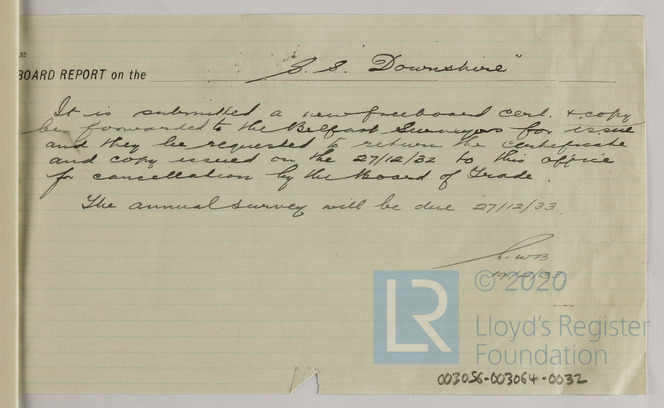 BOARD REPORT on the S.S. "Downshire"
It is submitted a new freeboard cert. & copy
be forwarded to the Belfast Surveyors for issue
and they be requested to return the certificate
and copy issued on the 27/12/32 to this office
for cancellation by the Board of Trade.
The annual survey will be due 27/12/33.
© 2020
LR
Lloyd's Register
Foundation
003056-003064-0032